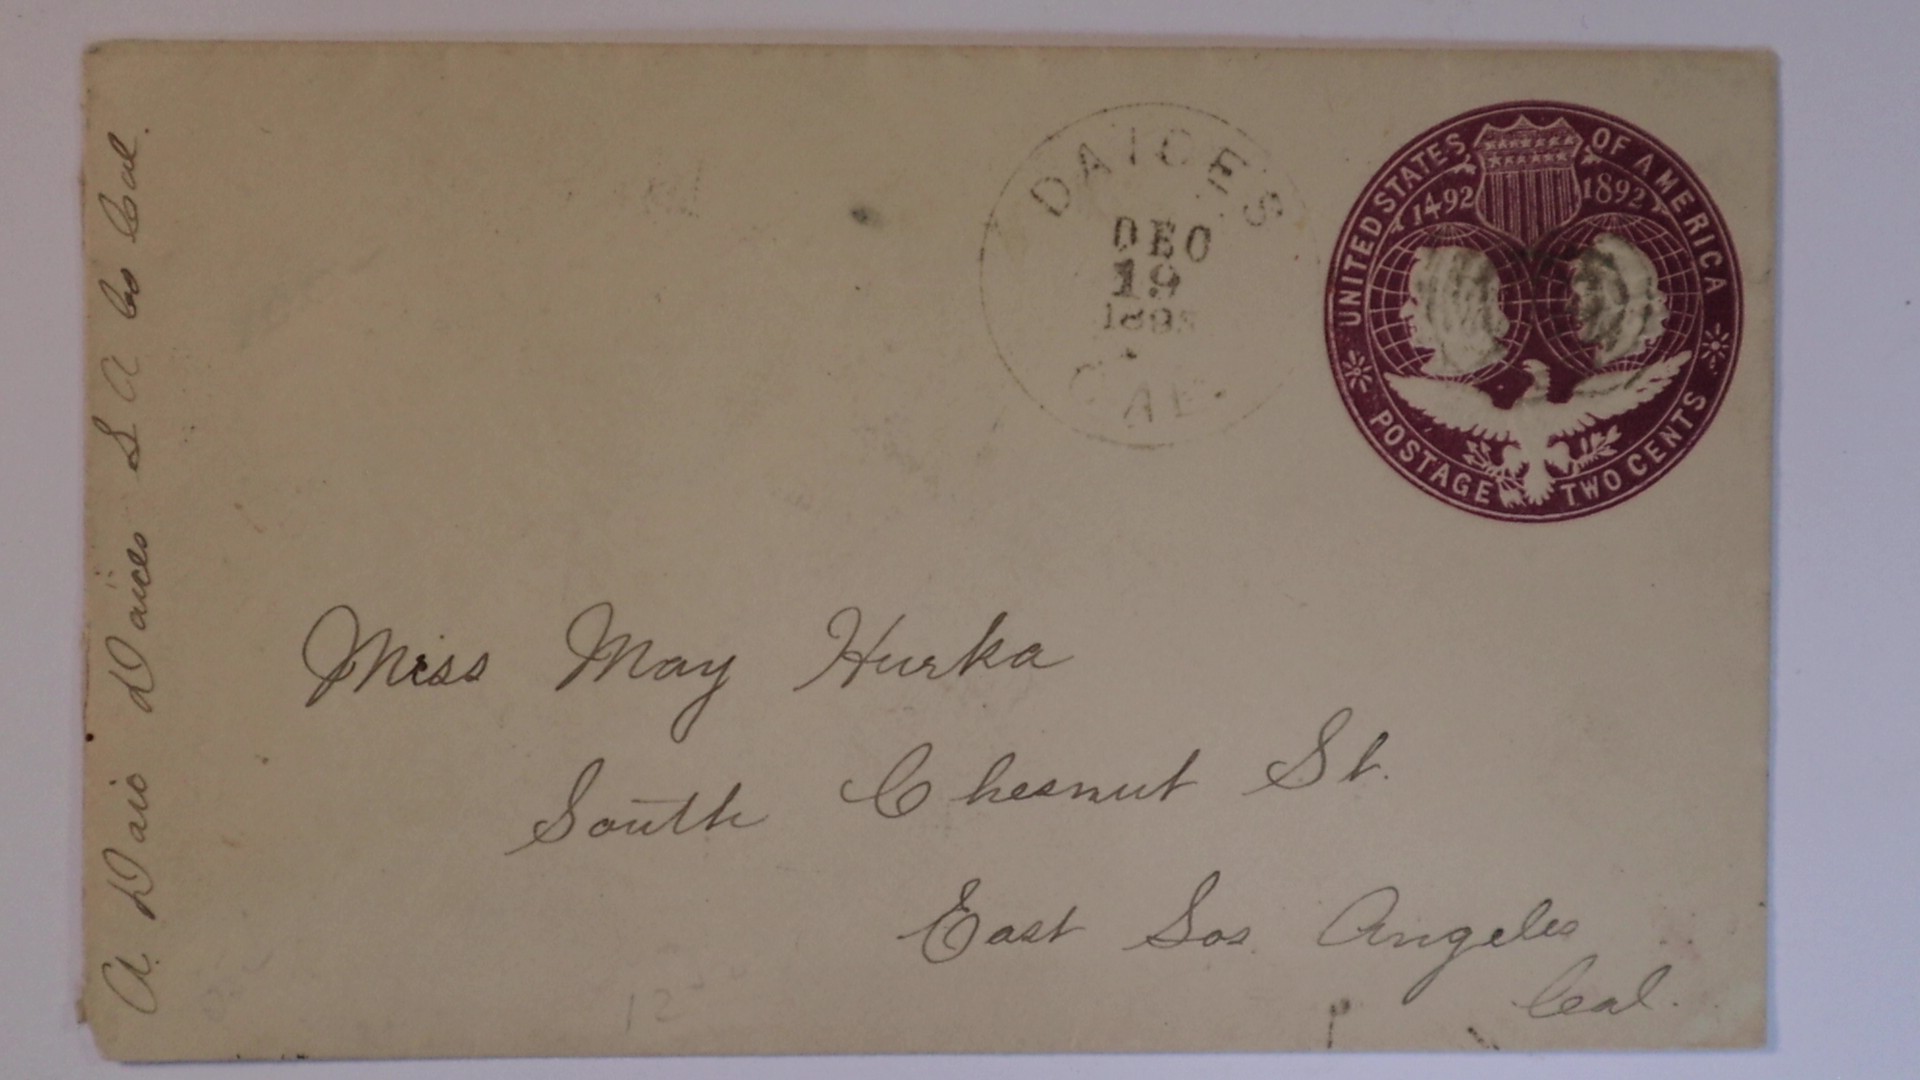 A. Daic Daices L A Co Cal.
DAICES
DEC
19
189
CAL.
UNITED STATES OF AMERICA
1492 1892
POSTAGE TWO CENTS
Miss May Hurka
South Chesnut St.
East Los Angeles
Cal.
12